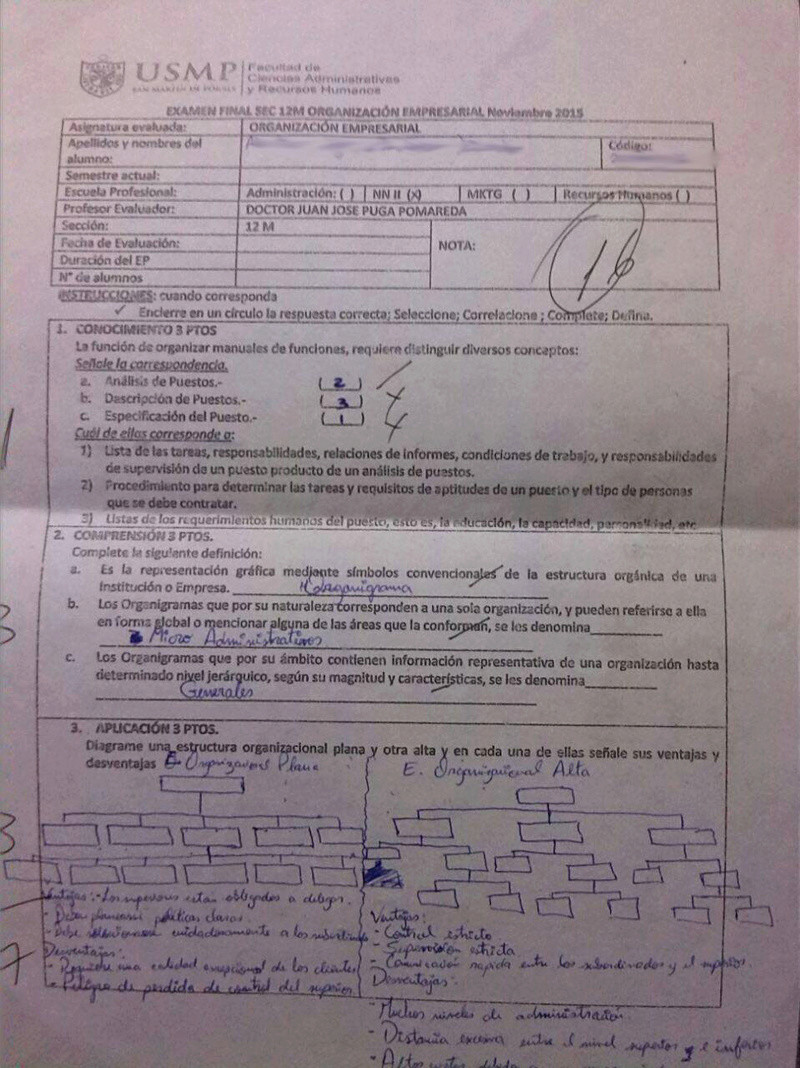 USMP
SAN MARTIN DE PORRES
Facultad de
Ciencias Administrativas
y Recursos Humanos
EXAMEN FINAL SEC 12M ORGANIZACIÓN EMPRESARIAL Noviembre 2015
Asignatura evaluada: ORGANIZACIÓN EMPRESARIAL
Apellidos y nombres del alumno: Código:
Semestre actual:
Escuela Profesional: Administración: ( ) NN II (x) MKTG ( ) Recursos Humanos ( )
Profesor Evaluador: DOCTOR JUAN JOSE PUGA POMAREDA
Sección: 12 M
Fecha de Evaluación:
NOTA: 16
Duración del EP
N° de alumnos
INSTRUCCIONES: cuando corresponda
✓ Encierre en un círculo la respuesta correcta; Seleccione; Correlacione ; Complete; Defina.
1. CONOCIMIENTO 3 PTOS
La función de organizar manuales de funciones, requiere distinguir diversos conceptos:
Señale la correspondencia.
a. Análisis de Puestos.- ( 2 )
b. Descripción de Puestos.- ( 3 )
c. Especificación del Puesto.- ( 1 )
Cuál de ellas corresponde a:
1) Lista de las tareas, responsabilidades, relaciones de informes, condiciones de trabajo, y responsabilidades
de supervisión de un puesto producto de un análisis de puestos.
2) Procedimiento para determinar las tareas y requisitos de aptitudes de un puerto y el tipo de personas
que se debe contratar.
3) Listas de los requerimientos humanos del puesto, esto es, la educación, la capacidad, personalidad, etc
2. COMPRENSIÓN 3 PTOS.
Complete la siguiente definición:
a. Es la representación gráfica mediante símbolos convencionales de la estructura orgánica de una
Institución o Empresa.
b. Los Organigramas que por su naturaleza corresponden a una sola organización, y pueden referirse a ella
en forma global o mencionar alguna de las áreas que la conforman, se les denomina
Micro Administrativos
c. Los Organigramas que por su ámbito contienen información representativa de una organización hasta
determinado nivel jerárquico, según su magnitud y características, se les denomina
Generales
3. APLICACIÓN 3 PTOS.
Diagrame una estructura organizacional plana y otra alta y en cada una de ellas señale sus ventajas y
desventajas
E. Organizacional Plana
E. Organizacional Alta
Ventajas: - Los superiores están obligados a delegar.
- Deben planearse políticas claras.
- Debe seleccionarse cuidadosamente a los subordinados
Desventajas:
- Requiere una calidad excepcional de los
- Peligro de perdida de control del superior
Ventajas:
- Control estricto
- Supervisión estricta
- Comunicación rapida entre los subordinados y el superior.
Desventajas:
- Muchos niveles de administración.
- Distancia excesiva entre el nivel superior y e inferior
- Altos costos debido a
1
3
3
7